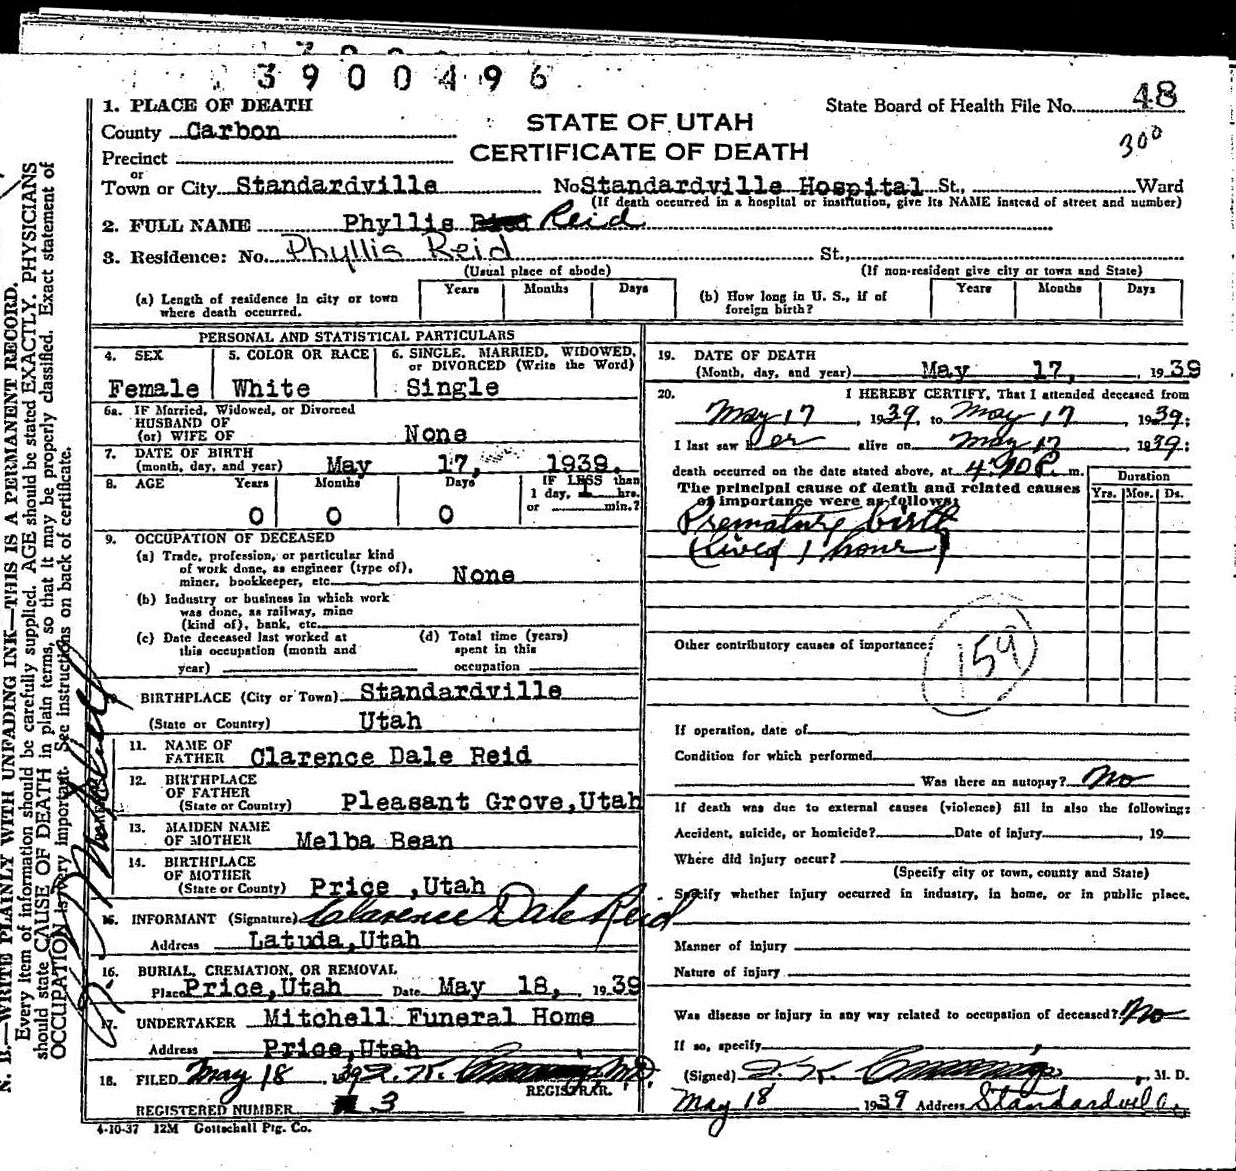 3900496
1. PLACE OF DEATH
State Board of Health File No. 48
County Carbon
STATE OF UTAH
300
Precinct
CERTIFICATE OF DEATH
or
Town or City Standardville No Standardville Hospital St., Ward
(If death occurred in a hospital or institution, give its NAME instead of street and number)
2. FULL NAME Phyllis Reid
3. Residence: No. Phyllis Reid St.,
(Usual place of abode) (If non-resident give city or town and State)
(a) Length of residence in city or town where death occurred. Years Months Days
(b) How long in U. S., if of foreign birth? Years Months Days
PERSONAL AND STATISTICAL PARTICULARS
4. SEX 5. COLOR OR RACE 6. SINGLE, MARRIED, WIDOWED, or DIVORCED (Write the Word)
Female White Single
6a. IF Married, Widowed, or Divorced
HUSBAND OF
(or) WIFE OF None
7. DATE OF BIRTH
(month, day, and year) May 17, 1939.
8. AGE Years Months Days IF LESS than
1 day, 1 hrs.
or min.?
0 0 0
9. OCCUPATION OF DECEASED
(a) Trade, profession, or particular kind
of work done, as engineer (type of),
miner, bookkeeper, etc. None
(b) Industry or business in which work
was done, as railway, mine
(kind of), bank, etc.
(c) Date deceased last worked at
this occupation (month and
year)
(d) Total time (years)
spent in this
occupation
BIRTHPLACE (City or Town) Standardville
(State or Country) Utah
11. NAME OF
FATHER Clarence Dale Reid
12. BIRTHPLACE
OF FATHER
(State or Country) Pleasant Grove, Utah
13. MAIDEN NAME
OF MOTHER Melba Bean
14. BIRTHPLACE
OF MOTHER
(State or County) Price ,Utah
15. INFORMANT (Signature) Clarence Dale Reid
Address Latuda, Utah
16. BURIAL, CREMATION, OR REMOVAL
Place Price, Utah Date May 18, 1939
17. UNDERTAKER Mitchell Funeral Home
Address Price, Utah
18. FILED May 18 , 1939
REGISTRAR.
REGISTERED NUMBER 3
4-10-37 12M Gottschall Ptg. Co.
19. DATE OF DEATH
(Month, day, and year) May 17, , 1939
20. I HEREBY CERTIFY, That I attended deceased from
May 17 , 1939, to May 17 , 1939;
I last saw her alive on May 17 1939;
death occurred on the date stated above, at m.
The principal cause of death and related causes
of importance were as follows:
Duration
Yrs. Mos. Ds.
Premature birth
(Lived 1 hour)
Other contributory causes of importance:
159
If operation, date of
Condition for which performed
Was there an autopsy? No
If death was due to external causes (violence) fill in also the following:
Accident, suicide, or homicide? Date of injury , 19
Where did injury occur?
(Specify city or town, county and State)
Specify whether injury occurred in industry, in home, or in public place.
Manner of injury
Nature of injury
Was disease or injury in any way related to occupation of deceased? No
If so, specify
(Signed) , M. D.
May 18 1939 Address Standardville
N. B.—WRITE PLAINLY WITH UNFADING INK—THIS IS A PERMANENT RECORD.
Every item of information should be carefully supplied. AGE should be stated EXACTLY. PHYSICIANS
should state CAUSE OF DEATH in plain terms, so that it may be properly classified. Exact statement of
OCCUPATION is very important. See instructions on back of certificate.